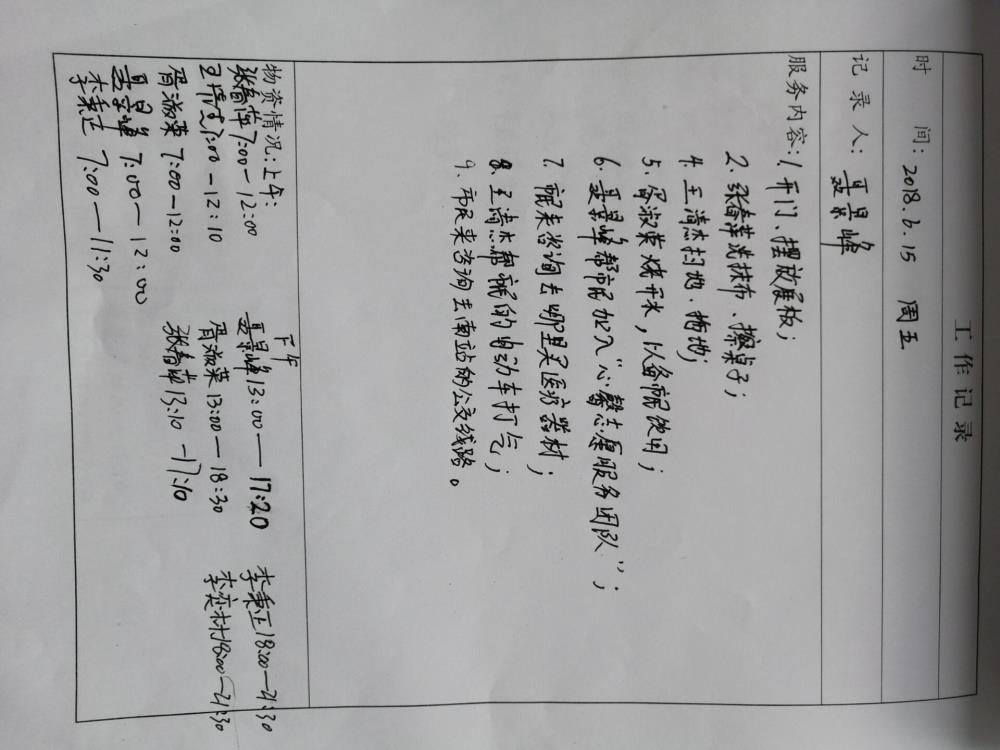 工作记录
时 间：2018.6.15 周五
记 录 人：聂景峰
服务内容：1. 开门、摆放展板；
2. 张春萍洗抹布、擦桌子；
4. 王清杰扫地、拖地；
5. 胥淑荣烧开水，以备市民使用；
6. 聂景峰帮市民加入“心馨志愿服务团队”；
7. 市民来咨询去哪里买医疗器材；
8. 王清杰帮市民的电动车打气；
9. 市民来咨询去南站的公交线路。
物资情况：上午：
张春萍 7:00-12:00
王清杰 7:00-12:10
胥淑荣 7:00-12:00
聂景峰 7:00—12:00
李秉正 7:00—11:30
下午
聂景峰 13:00—17:20
胥淑荣 13:00—18:30
张春萍 13:10-17:10
李秉正 18:00-21:30
李奕材 18:00-21:30